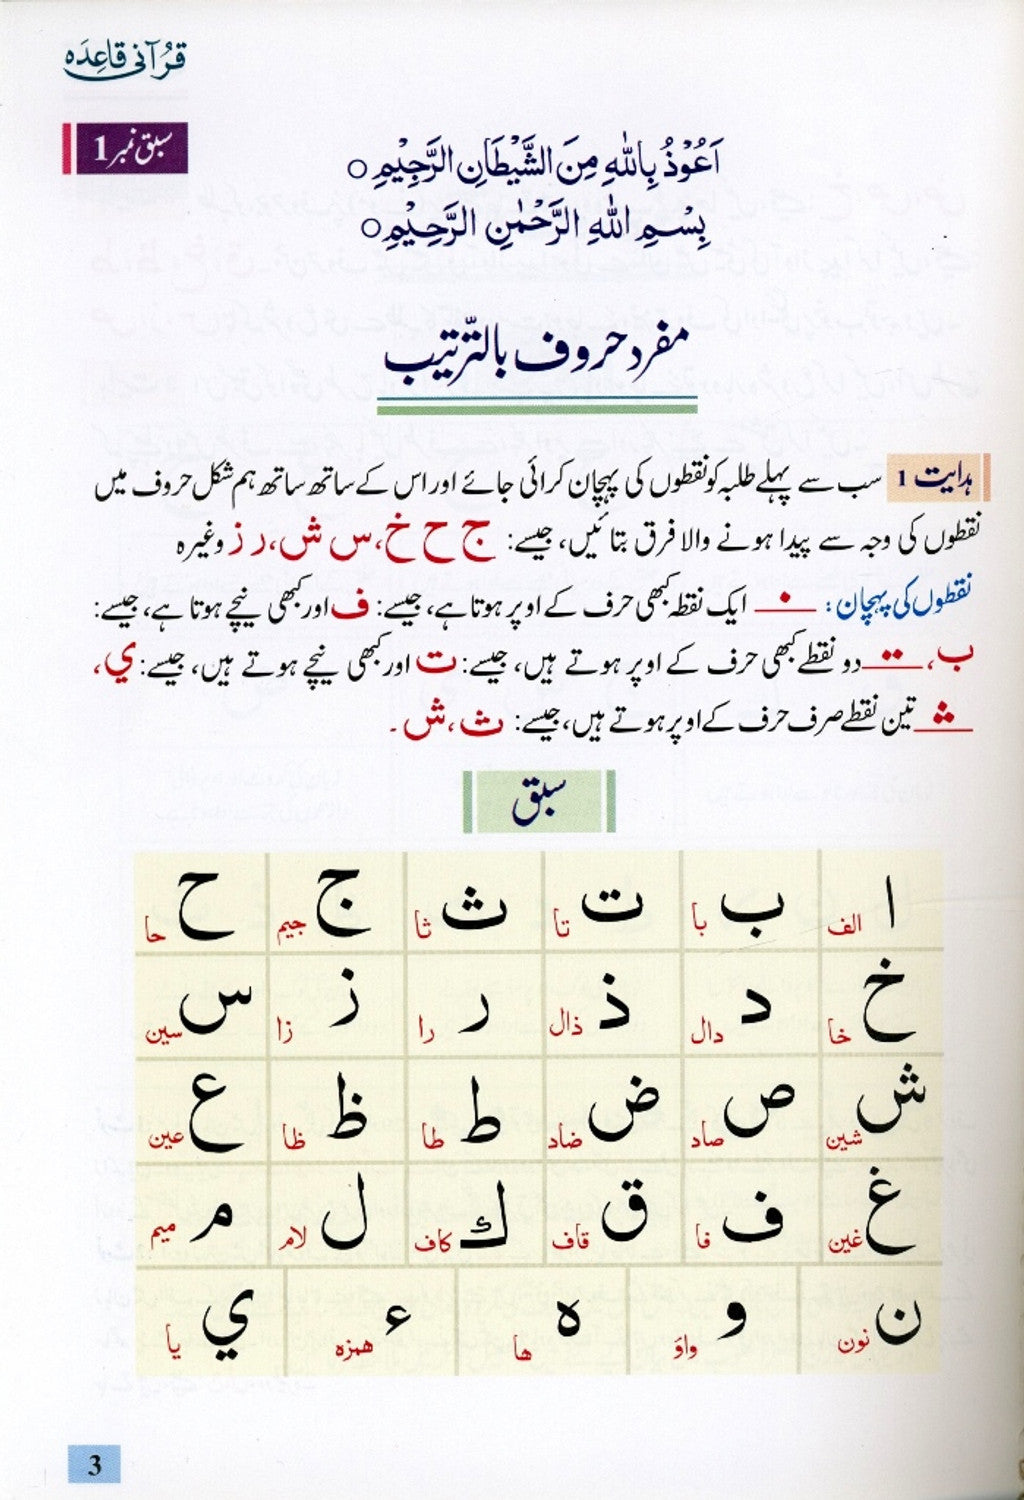 قرآنی قاعدہ
سبق نمبر 1
اَعُوْذُ بِاللّٰهِ مِنَ الشَّيْطَانِ الرَّجِيْمِ○
بِسْمِ اللّٰهِ الرَّحْمٰنِ الرَّحِيْمِ○
مفرد حروف بالتّرتیب
ہدایت 1 سب سے پہلے طلبہ کو نقطوں کی پہچان کرائی جائے اور اس کے ساتھ ساتھ ہم شکل حروف میں
نقطوں کی وجہ سے پیدا ہونے والا فرق بتائیں، جیسے: ج ح خ، س ش، ر ز وغیرہ
نقطوں کی پہچان: ایک نقطہ کبھی حرف کے اوپر ہوتا ہے، جیسے: ف اور کبھی نیچے ہوتا ہے، جیسے:
ب، دو نقطے کبھی حرف کے اوپر ہوتے ہیں، جیسے: ت اور کبھی نیچے ہوتے ہیں، جیسے: ي،
تین نقطے صرف حرف کے اوپر ہوتے ہیں، جیسے: ث، ش۔
سبق
ا الف ب با ت تا ث ثا ج جیم ح حا
خ خا د دال ذ ذال ر را ز زا س سین
ش شین ص صاد ض ضاد ط طا ظ ظا ع عین
غ غین ف فا ق قاف ك کاف ل لام م میم
ن نون و واوٴ ه ها ء همزه ي یا
3